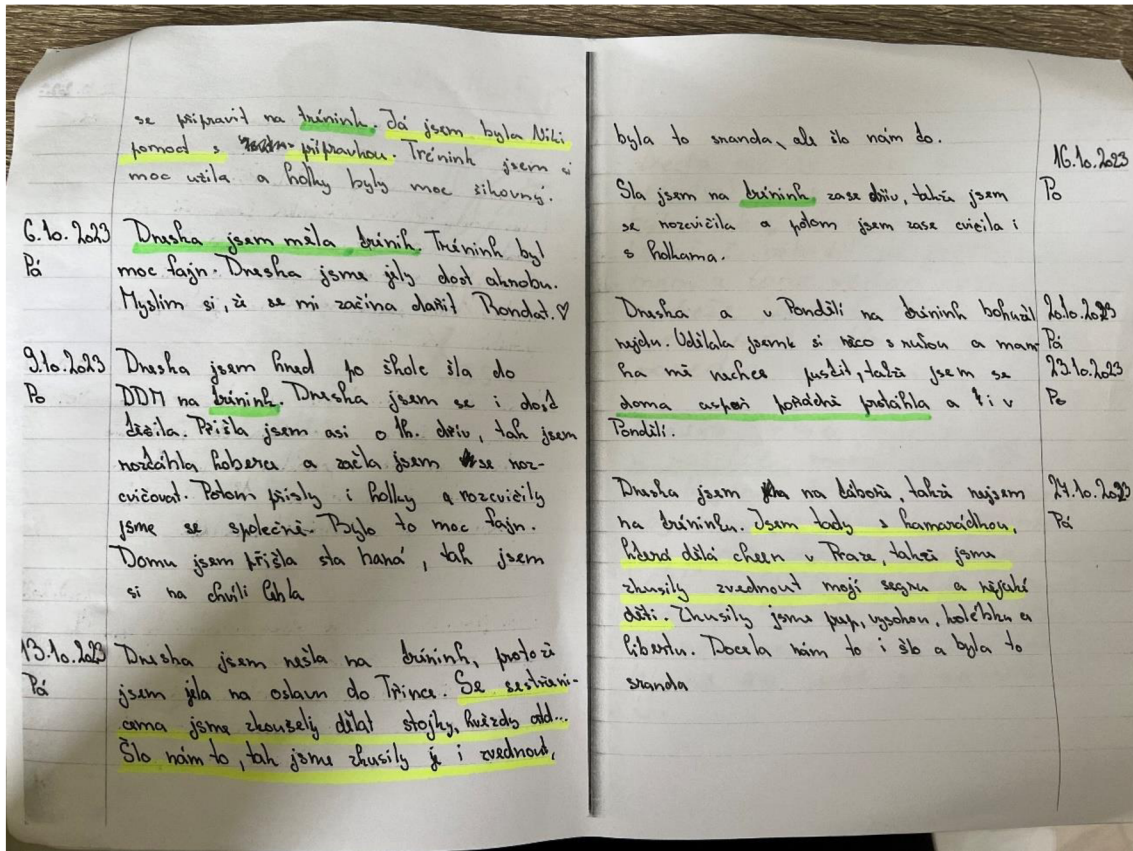 se připravit na trénink. Já jsem byla Niki
pomoct s přípravkou. Trénink jsem si
moc užila a holky byly moc šikovný.
6.10.2023
Pá
Dneska jsem měla trénik. Trénink byl
moc fajn. Dneska jsme jely dost aknobu.
Myslim si, že se mi začina dařit Rondat.♡
9.10.2023
Po
Dneska jsem hned po škole šla do
DDM na trénink. Dneska jsem se i dost
těšila. Přišla jsem asi o 1h. dřiv, tak jsem
roztáhla koberce a začla jsem se roz-
cvičovat. Potom přisly i holky a rozcvičily
jsme se společně. Bylo to moc fajn.
Domu jsem přišla sta haná, tak jsem
si na chvíli lehla
13.10.2023
Pá
Dneska jsem nešla na trénink, protože
jsem jela na oslavu do Třince. Se sestřeni-
cema jsme zkoušely dělat stojky, hvězdy atd...
Šlo nám to, tak jsme zkusily je i zvednout,
byla to sranda, ale šlo nám to.
16.10.2023
Po
Šla jsem na trénink zase dřiv, takže jsem
se rozcvičila a potom jsem zase cvičila i
s holkama.
20.10.2023
Pá
23.10.2023
Po
Dneska a v Ponděli na trénink bohužel
nejdu. Udělala jsem si něco s rukou a mam
ka mě nechce pustit, takže jsem se
doma aspoň pořádně protáhla a i v
Ponděli.
27.10.2023
Pá
Dneska jsem na táboře, takže nejsem
na tréninku. Jsem tady s kamarádkou,
která dělá cheer v Praze, takže jsme
zkusily zvednout mojí segru a nějaké
děti. Zkusily jsme prep, vysokou, kolébku a
libertu. Docela nám to i šlo a byla to
sranda